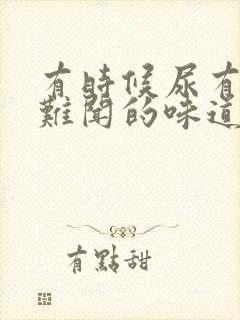 有時候尿有
難聞的味道
有點甜